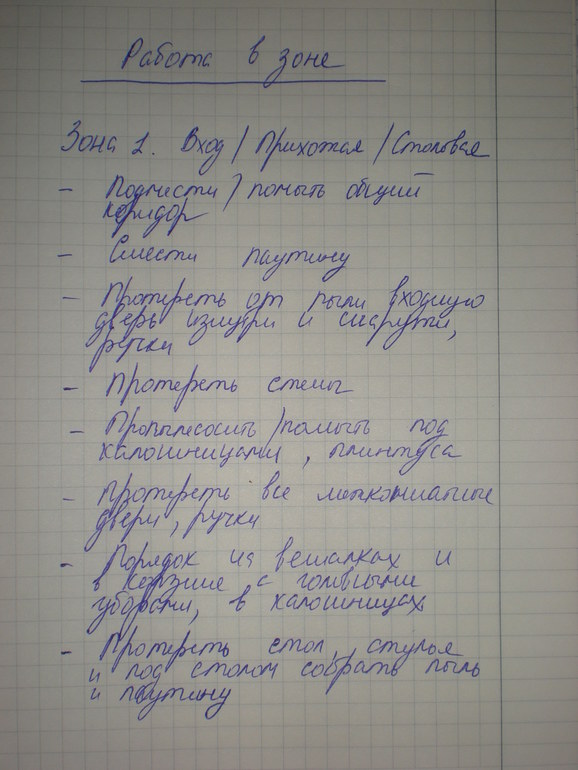 Работа в зоне
Зона 1. Вход / Прихожая / Столовая
- Подмести / помыть общий
коридор
- Смести паутину
- Протереть от пыли входную
дверь изнутри и снаружи,
ручки
- Протереть стены
- Пропылесосить / помыть под
калошницами, плинтуса
- Протереть все межкомнатные
двери, ручки
- Порядок на вешалках и
в корзине с головными
уборами, в калошницах
- Протереть стол, стулья
и под столом собрать пыль
и паутину